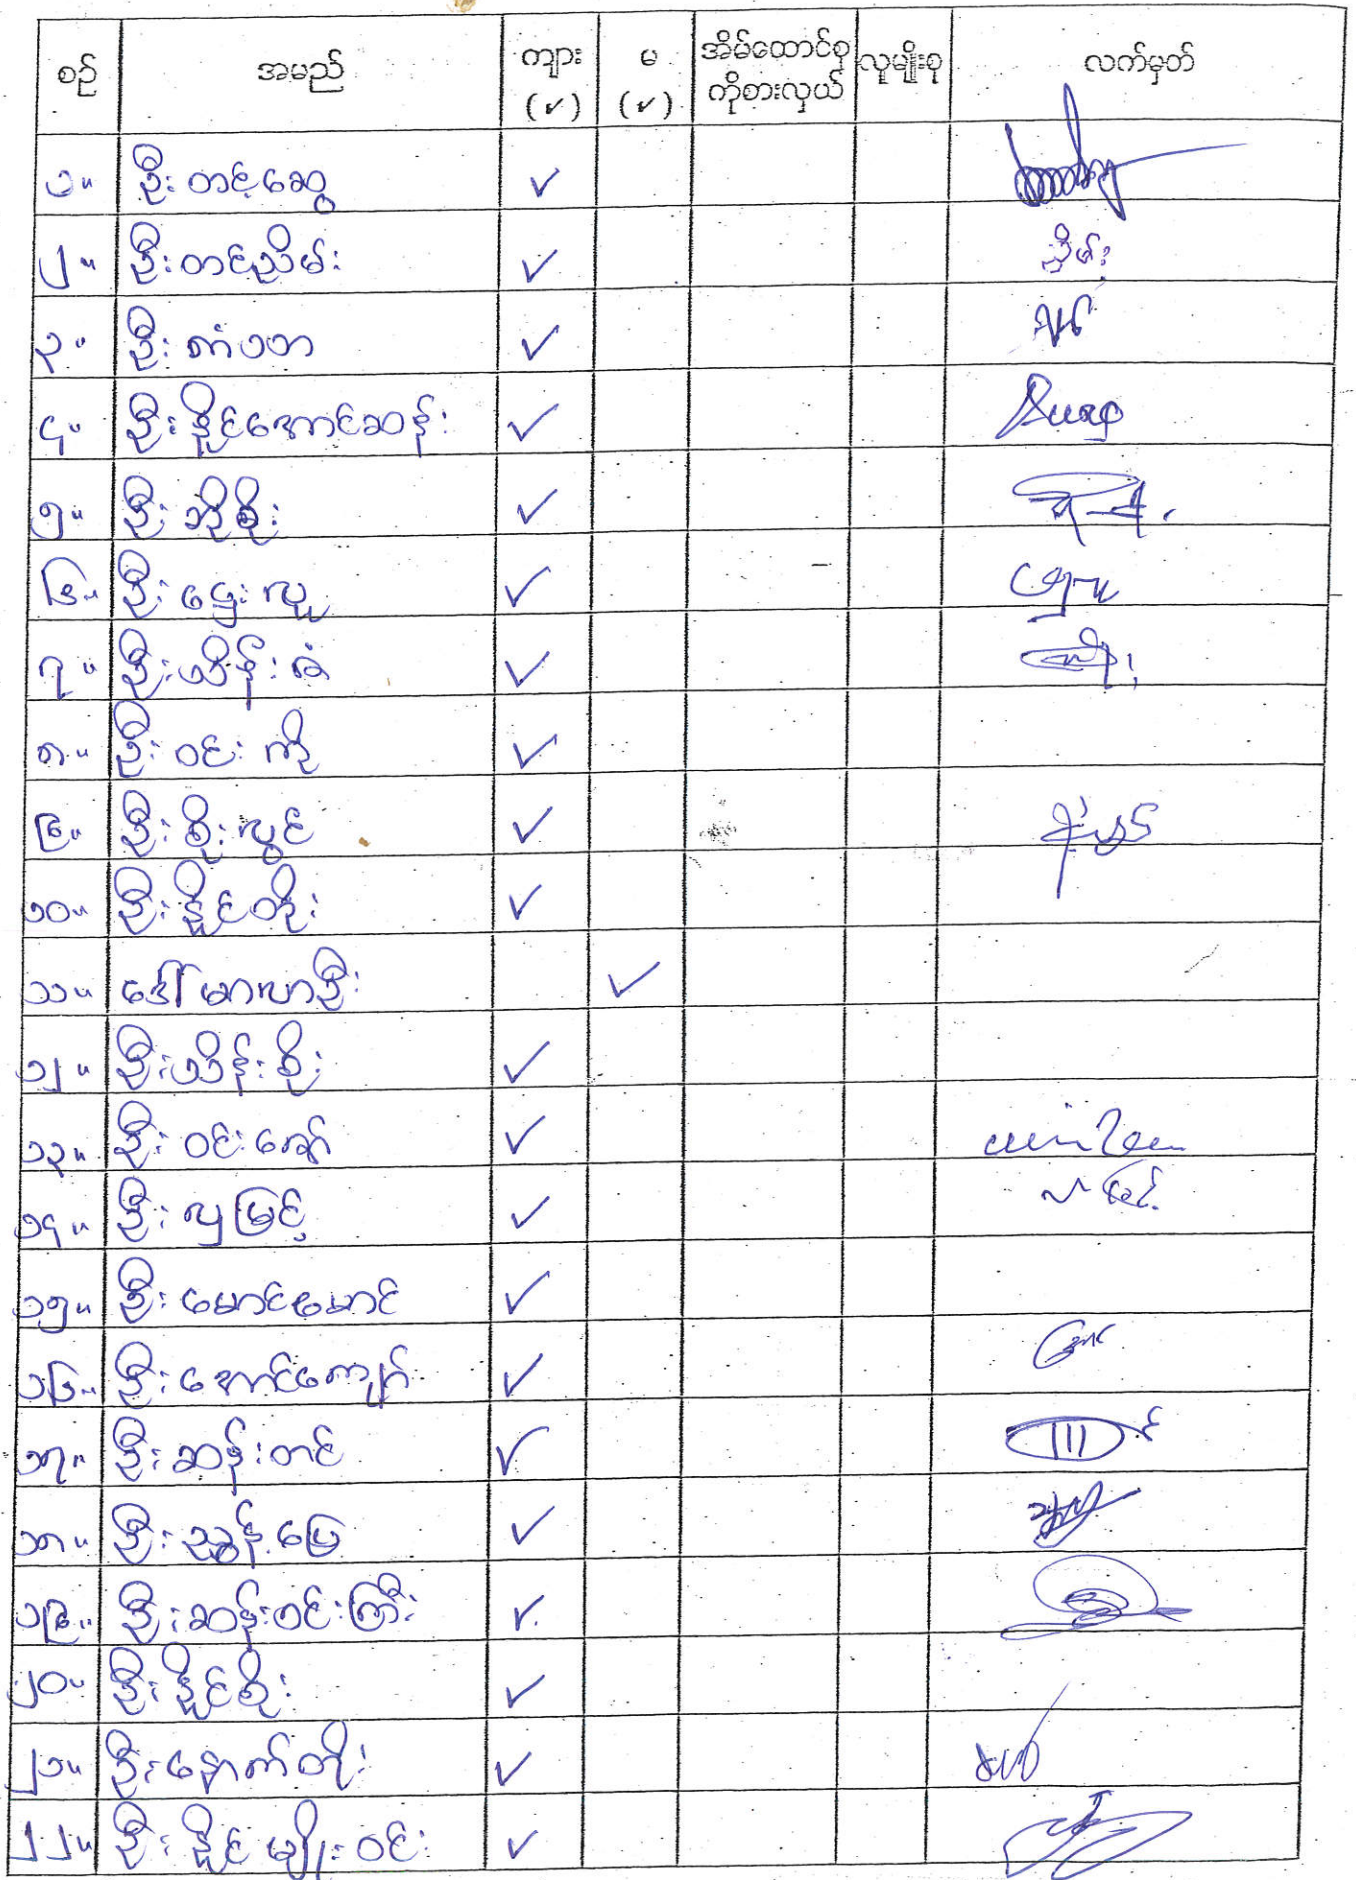 စဉ် အမည် ကျား (✓) မ (✓) အိမ်ထောင်စု ကိုစားလှယ် လူမျိုးစု လက်မှတ်
၁။ ဦးတင့်ဆွေ ✓
၂။ ဦးတင်ညိမ်း ✓ ညိမ်း
၃။ ဦး ✓
၄။ ဦးနိုင်အောင်ဆန်း ✓
၅။ ဦးဘိုစိုး ✓
၆။ ဦးဌေးလူ ✓
၇။ ဦးသိန်းခံ ✓
၈။ ဦးဝင်းကို ✓
၉။ ဦးစိုးလွင် ✓
၁၀။ ဦးနိုင်တိုး ✓
၁၁။ ဒေါ်မာလာဦး ✓
၁၂။ ဦးသိန်းစိုး ✓
၁၃။ ဦးဝင်းအော် ✓
၁၄။ ဦးလှမြင့် ✓
၁၅။ ဦးမောင်မောင် ✓
၁၆။ ဦးအောင်ကျော် ✓
၁၇။ ဦးဆန်းတင် ✓
၁၈။ ဦးညွန့်မြေ ✓
၁၉။ ဦးဆန်းဝင်းကြီး ✓
၂၀။ ဦးနိုင်စိုး ✓
၂၁။ ဦးနောက်တိုး ✓
၂၂။ ဦးနိုင်မျိုးဝင်း ✓